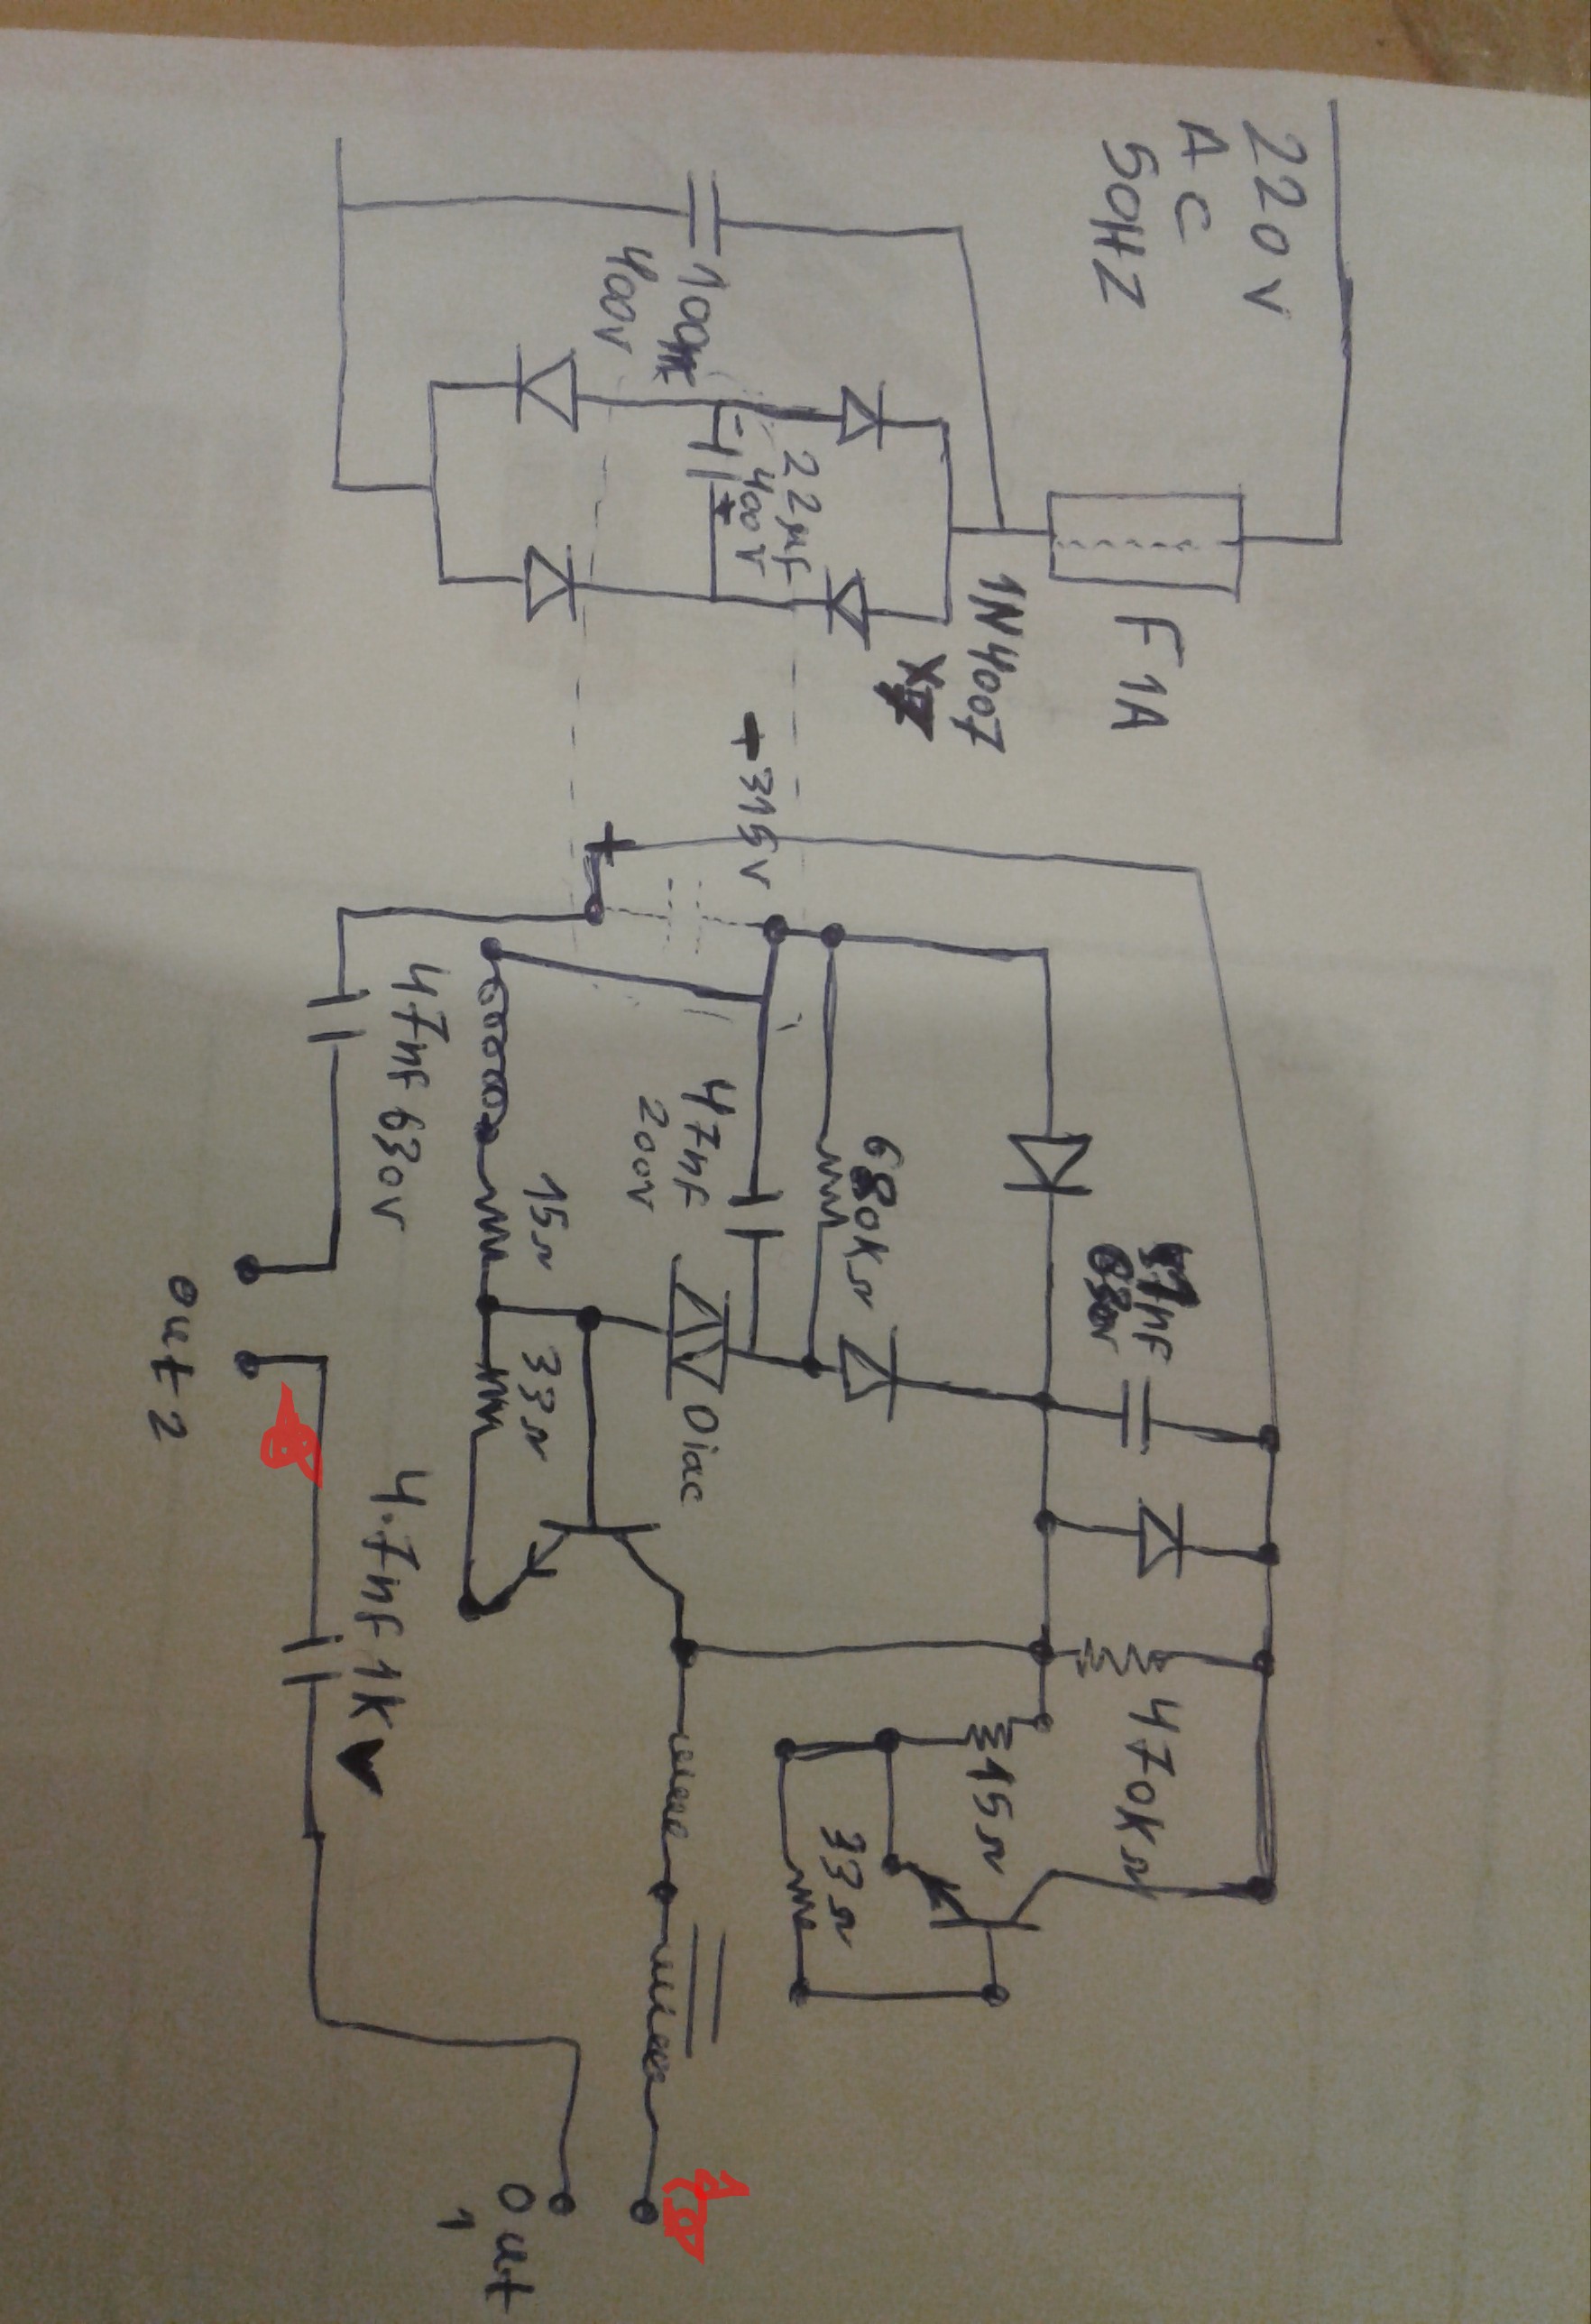 220V
AC
50HZ
F1A
1N4007
100n
400V
22µF
400V
-
+
+315V
+
680KΩ
47nF
200V
47nF 630V
15Ω
33Ω
Diac
470KΩ
15Ω
33Ω
4.7nF 1KV
out 2
out
1